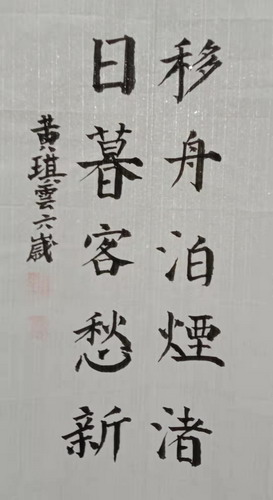 移舟泊煙渚
日暮客愁新
黄琪雲六歳